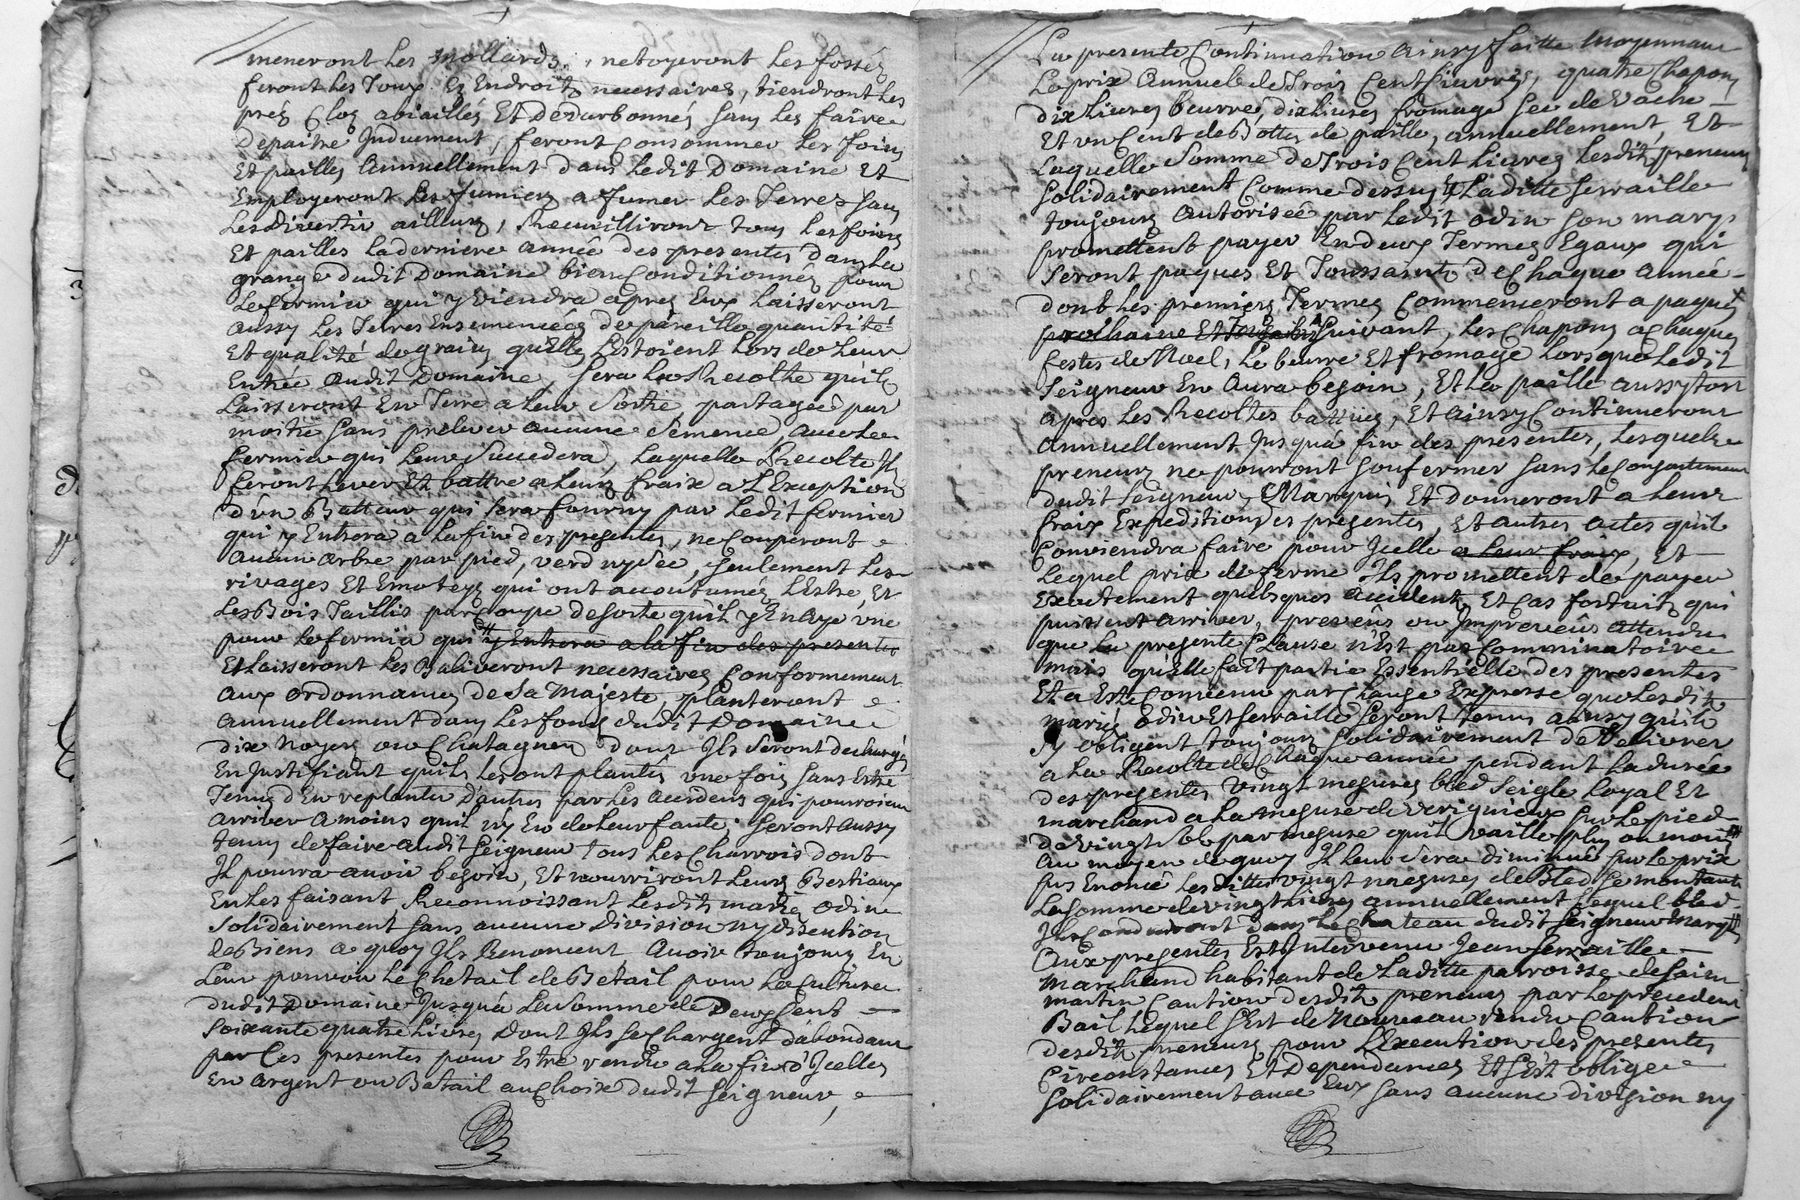 meneront les mollards, netoyeront les fossés
feront les Joux Es Endroits necessaires, tiendront les
prés Clos abiaillés Et dedarbonnés sans les faire
Depaitre Induement, feront Consommer les foins
Et pailles Annuellement dans ledit Domaine Et
Employeront les fumiers a fumer les Terres sans
les divertir ailleurs, Recuilliront tous les foins
Et pailles la derniere année des presentes dans la
grange dudit Domaine bien Conditionnés pour
le fermier qui y viendra apres Eux laisseront
aussy les Terres Ensemencées de pareille quantité
Et qualité de grains qu'Elles Estoient lors de leur
Entrée audit Domaine, sera la Recolte qu'ils
laisseront En Terre a leur Sortie partagée par
moitié sans prelever aucune Semence, avec le
fermier qui leur Succedera, laquelle Recolte Ils
feront lever Et battre a leurs fraix a L'Exception
d'un Batteur qui sera fourny par ledit fermier
qui y Entrera a la fin des presentes, ne Couperont
aucun arbre par pied, verd ny sec, seulement les
rivages Et Emoteys qui ont accoutumés L'Estre, Et
les Bois Taillis par Coupe de sorte qu'il y En aye une
pour le fermier qui y Entrera a la fin des presentes
Et laisseront les Baliveront necessaires Conformement
aux ordonnances de Sa Majesté, planteront
annuellement dans les fonds dudit Domaine
dix Noyers ou Chatagners dont Ils seront dechargés
En Justifiant qu'ils les ont plantés une fois sans Estre
Tenus d'En replanter d'autres par les accidens qui pourroient
arriver a moins qu'il n'y En de leur faute, seront aussy
tenus de faire audit Seigneur tous les Charrois dont
Il pourra avoir besoin, Et nourriront leurs Bestiaux
En les faisant, Reconnoissant lesdits mariés odin
Solidairement sans aucune Division ny discution
de Biens a quoy Ils Renoncent avoir toujours En
leur pouvoir le Chetail de Betail pour la Culture
dudit Domaine Jusqu'a la somme de Deux Cent
Soixante quatre livres dont Ils se Chargent d'abondant
par Ces presentes pour Estre rendu a la fin d'Icelles
En argent ou Betail au Choix dudit Seigneur,
La presente Continuation ainsy faitte moyennant
Le prix Annuel de Trois Cent livres, quatre Chapons
dix livres beurre, dix livres fromage sec de vache
Et un Cent de Bottes de paille, annuellement, Et
laquelle Somme de Trois Cent livres lesdits preneurs
Solidairement Comme dessus Et Laditte serraille
toujours autorisée par ledit odin son mary
promettent payer En deux Termes Egaux qui
Seront paques Et Toussaints de Chaque année
dont les premiers Termes Commenceront a paques
prochaine Et Suivant, les Chapons a chaques
festes de Noel, le beurre Et fromage lorsque ledit
Seigneur En aura besoin, Et la paille aussytost
apres les Recoltes battues, Et ainsy Continueront
annuellement Jusqu'a fin des presentes, lesquels
preneurs ne pourront sousfermer sans le Consentement
dudit Seigneur Marquis Et donneront a leurs
fraix Expeditions des presentes, Et autres actes qu'il
Conviendra faire pour Icelle a leur fraix, Et
lequel prix de ferme Ils promettent de payer
Exactement quelsques accidents Et Cas fortuits qui
puissent arriver, preveûs ou Impreveûs attendu
que la presente Clause n'Est pas Comminatoire
mais qu'Elle fait partie Essentielle des presentes
Et a Esté Convenu par Clause Expresse que lesdits
mariés odin Et serraille seront tenus ainsy qu'ils
s'y obligent toujours solidairement de Delivrer
a la Recolte de Chaque année pendant la durée
des presentes vingt mesures bled Seigle loyal Et
marchand a la mesure de sur le pied
de vingt sols par mesure qu'il vaille plus ou moins
au moyen de quoy Il leur sera diminué sur le prix
sus Enoncé lesdittes vingt mesures de Bled se montant
la somme de vingt livres annuellement lequel bled
Ils Conduiront dans le Chateau dudit Seigneur Marquis
Aux presentes Est Intervenu Jean serraille
Marchand habitant de Laditte parroisse de saint
martin Caution desdits preneurs par le precedent
Bail lequel s'Est de Nouveau rendu Caution
desdits preneurs pour L'Execution des presentes
Circonstances Et Dependances Et s'Est obligé
Solidairement avec Eux sans aucune division ny